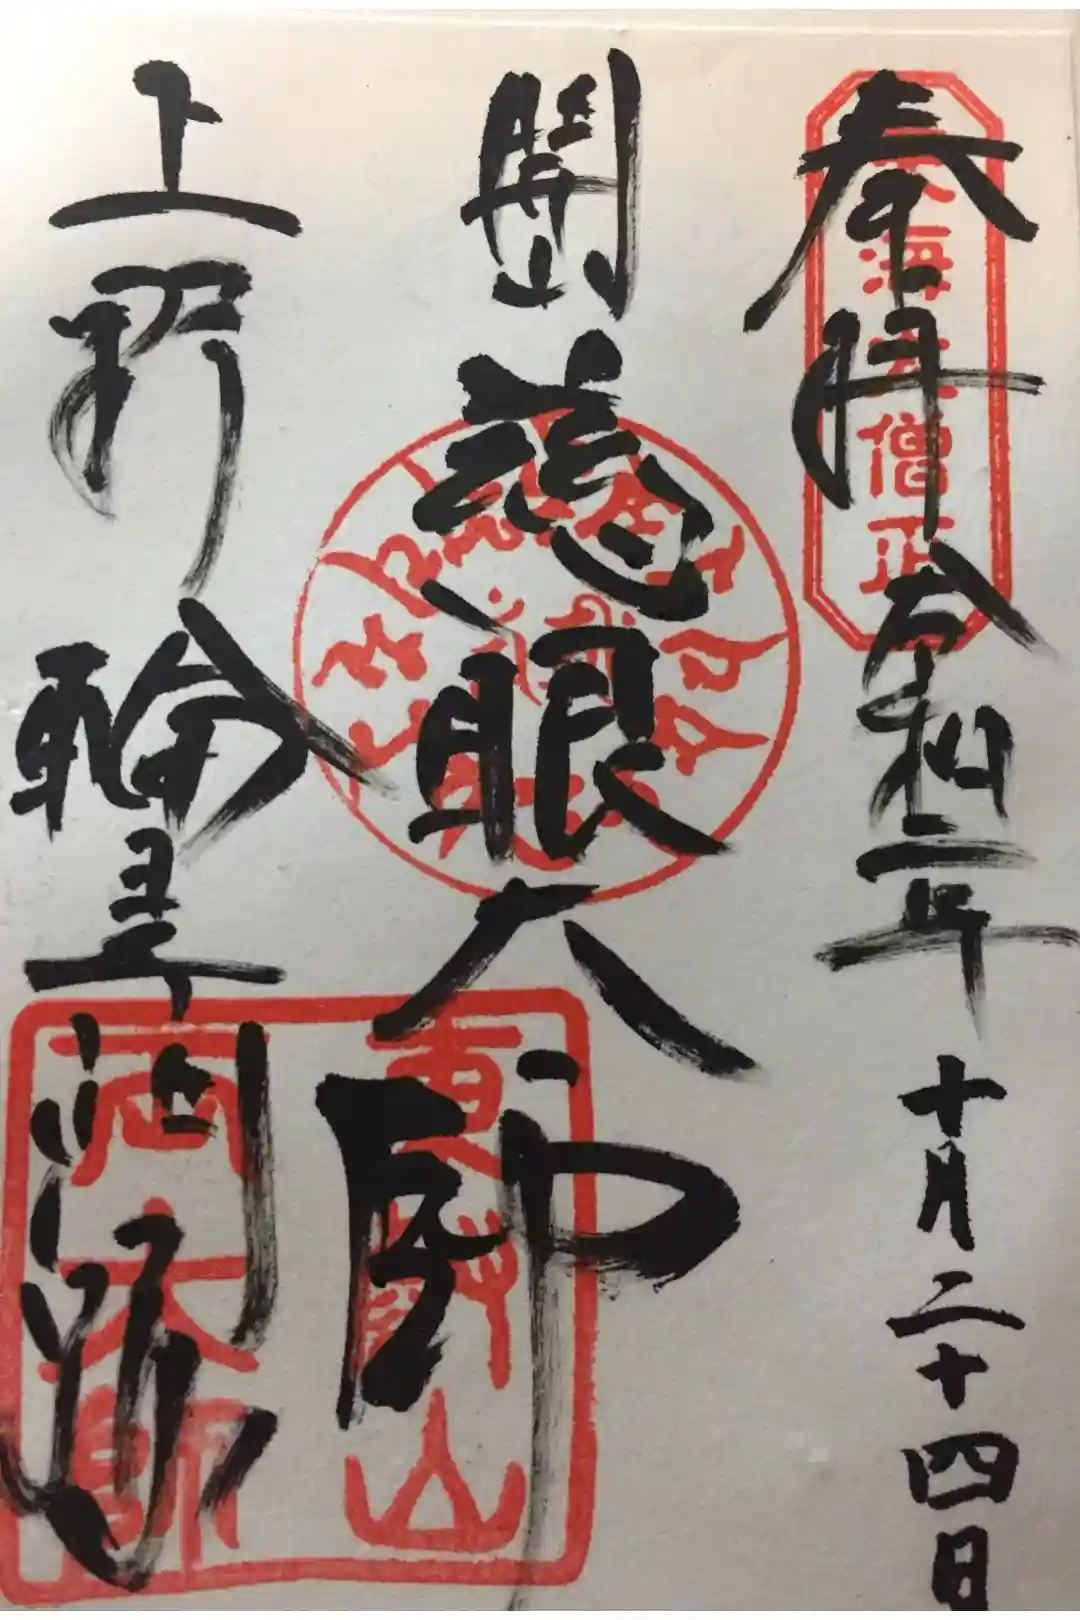 奉拝 令和二年十月二十四日
開山 慈眼大師
上野 輪王寺門跡
天海大僧正
東叡山
両大師